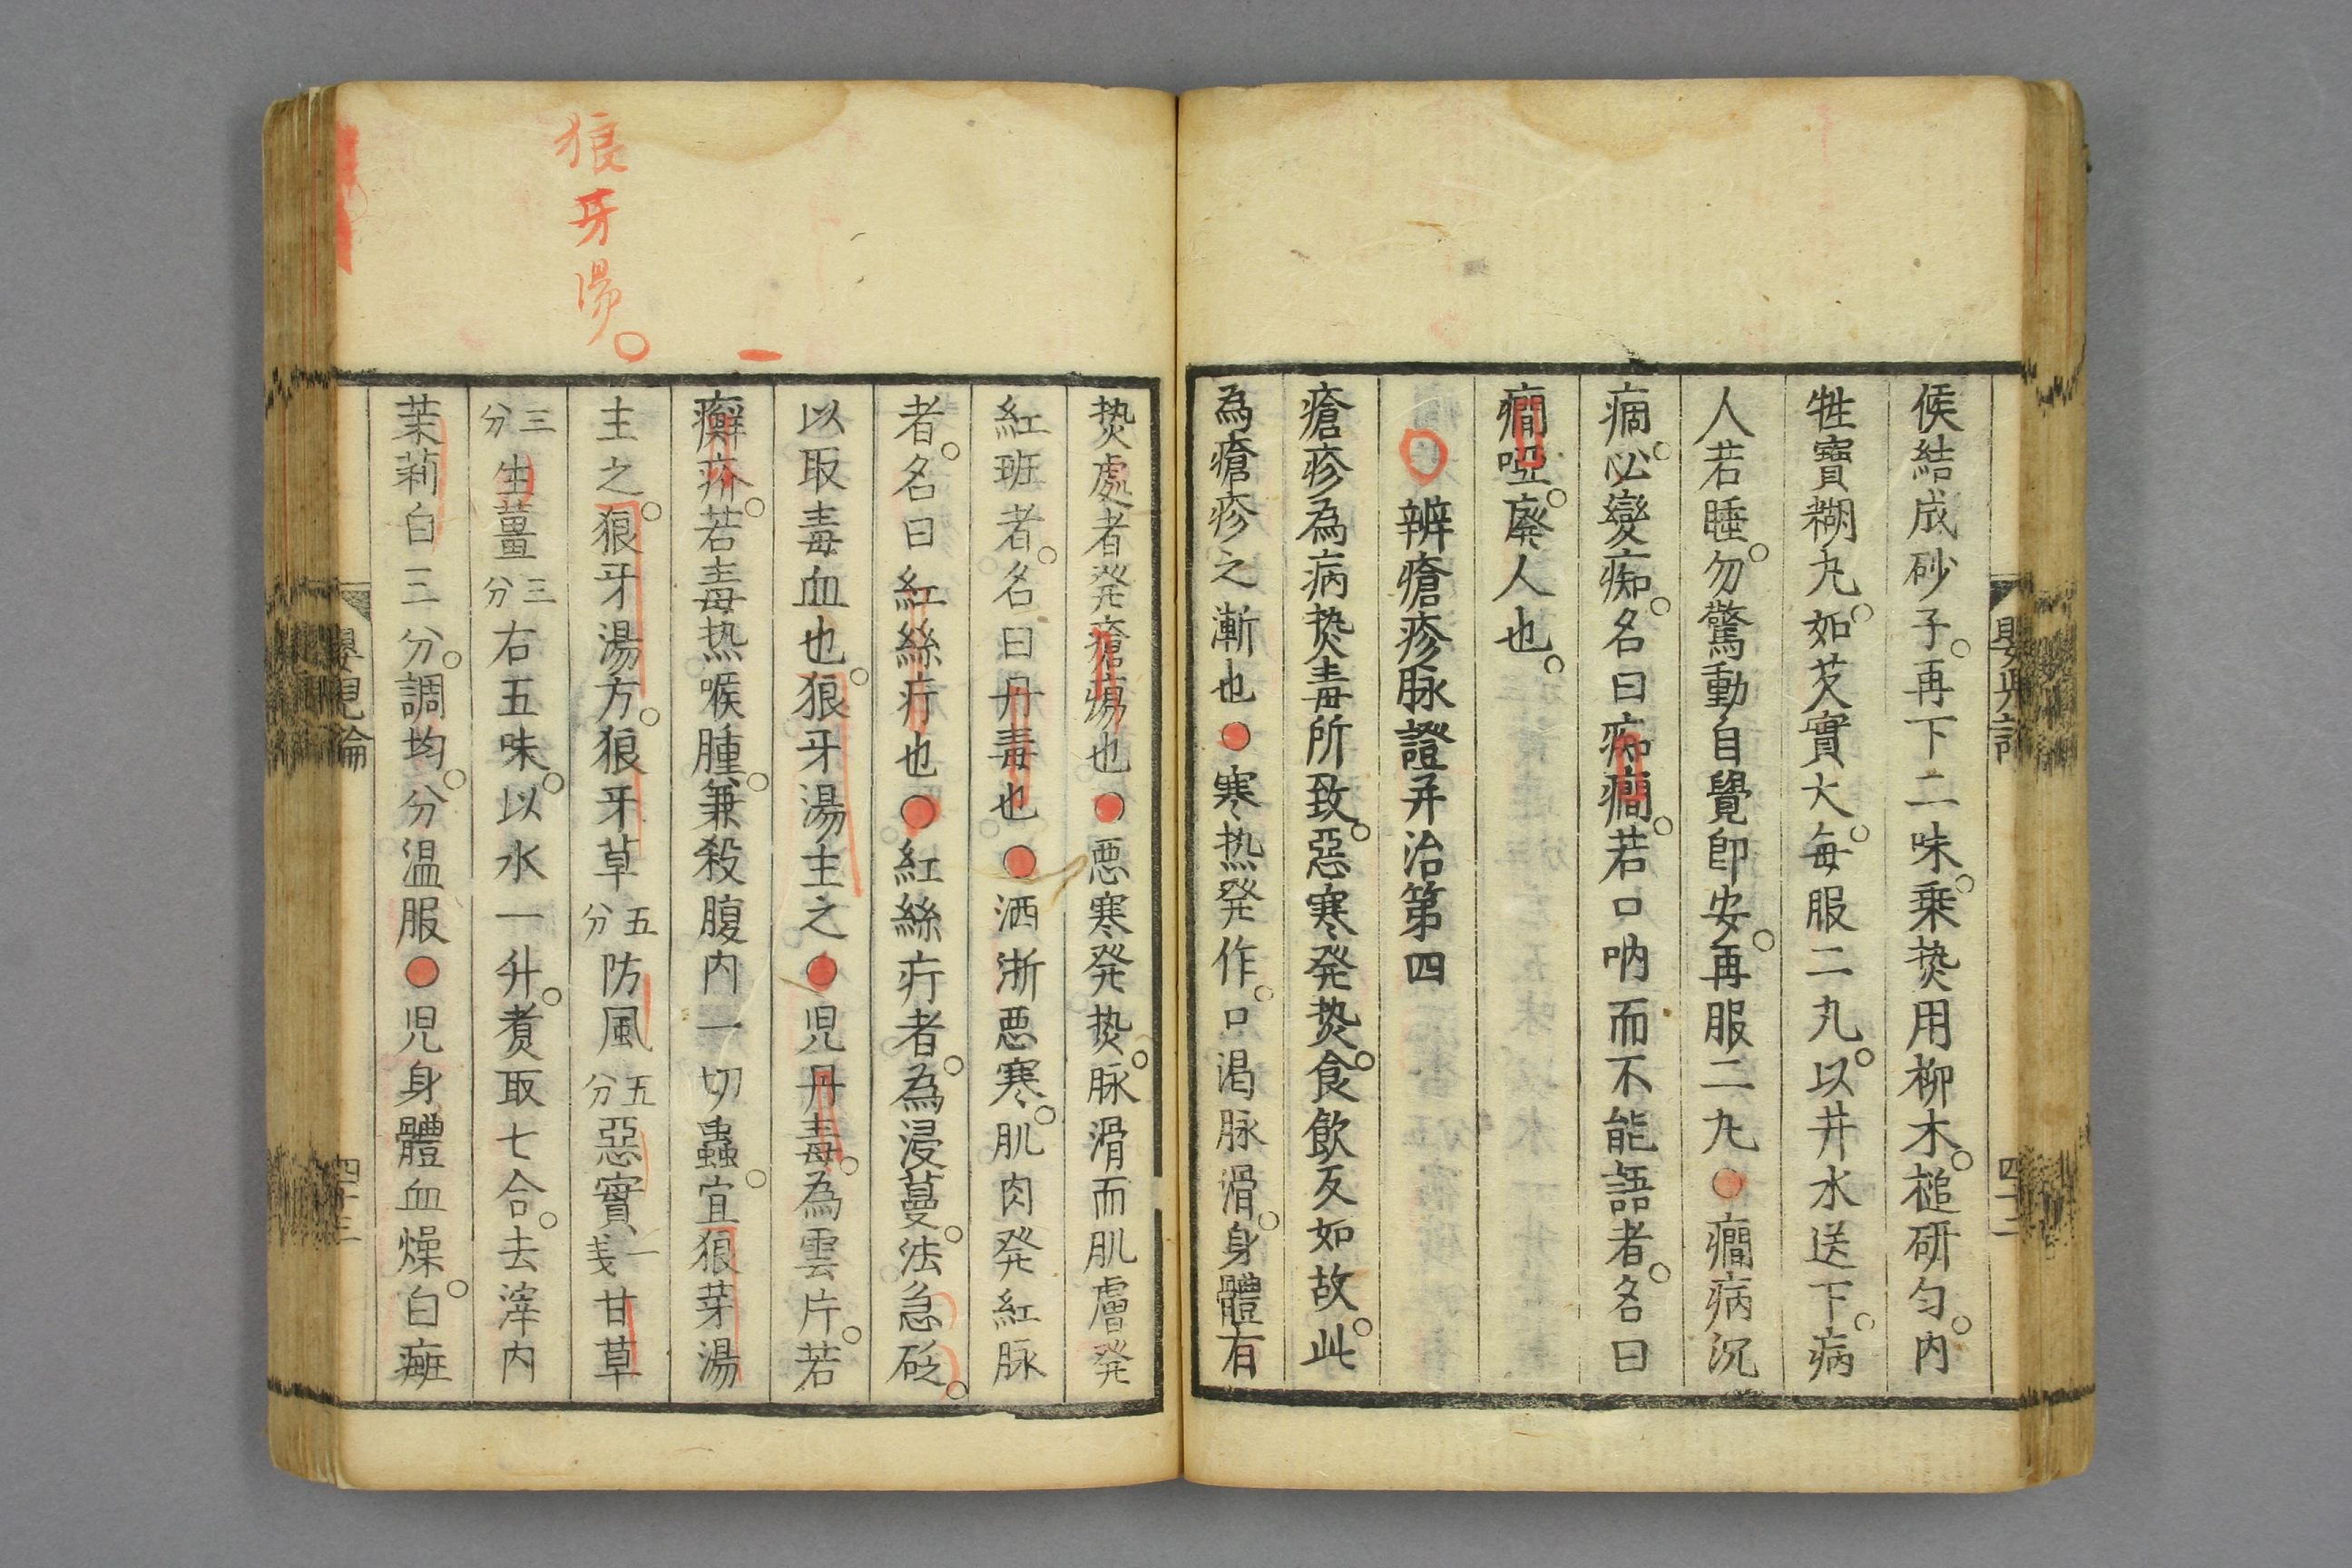 候結成砂子。再下二味。乗𤍠用柳木。槌研匀。内
牲寶糊丸。如芡實大。每服二丸。以井水送下。病
人若睡。勿驚動。自覺即安。再服二丸●癎病沉
痼。必變痴。名曰痴癎。若口吶而不能語者。名曰
癎啞。廃人也。
○辨瘡疹脉證并治第四
瘡疹為病𤍠毒所致。惡寒発𤍠。食飲反如故。此
為瘡疹之漸也●寒热発作。口渇脉滑。身體有
嬰児論
四十二
𤍠處者発瘡瘍也●悪寒発𤍠。脉滑而肌膚発
紅班者。名曰丹毒也●洒淅悪寒。肌肉発紅脉
者。名曰紅絲疔也●紅絲疔者。為浸蔓。法急砭。
以取毒血也。狼牙湯主之●児丹毒。為雲片。若
癬疥。若毒热喉腫。兼殺腹内一切蟲。宜狼芽湯
主之。狼牙湯方。狼牙草五分防風五分惡實一戔甘草
三分生薑三分右五味。以水一升。煑取七合。去滓内
茉莉白三分。調均。分温服●児身體血燥。白𤻤
嬰児論
四十三
狼牙湯。